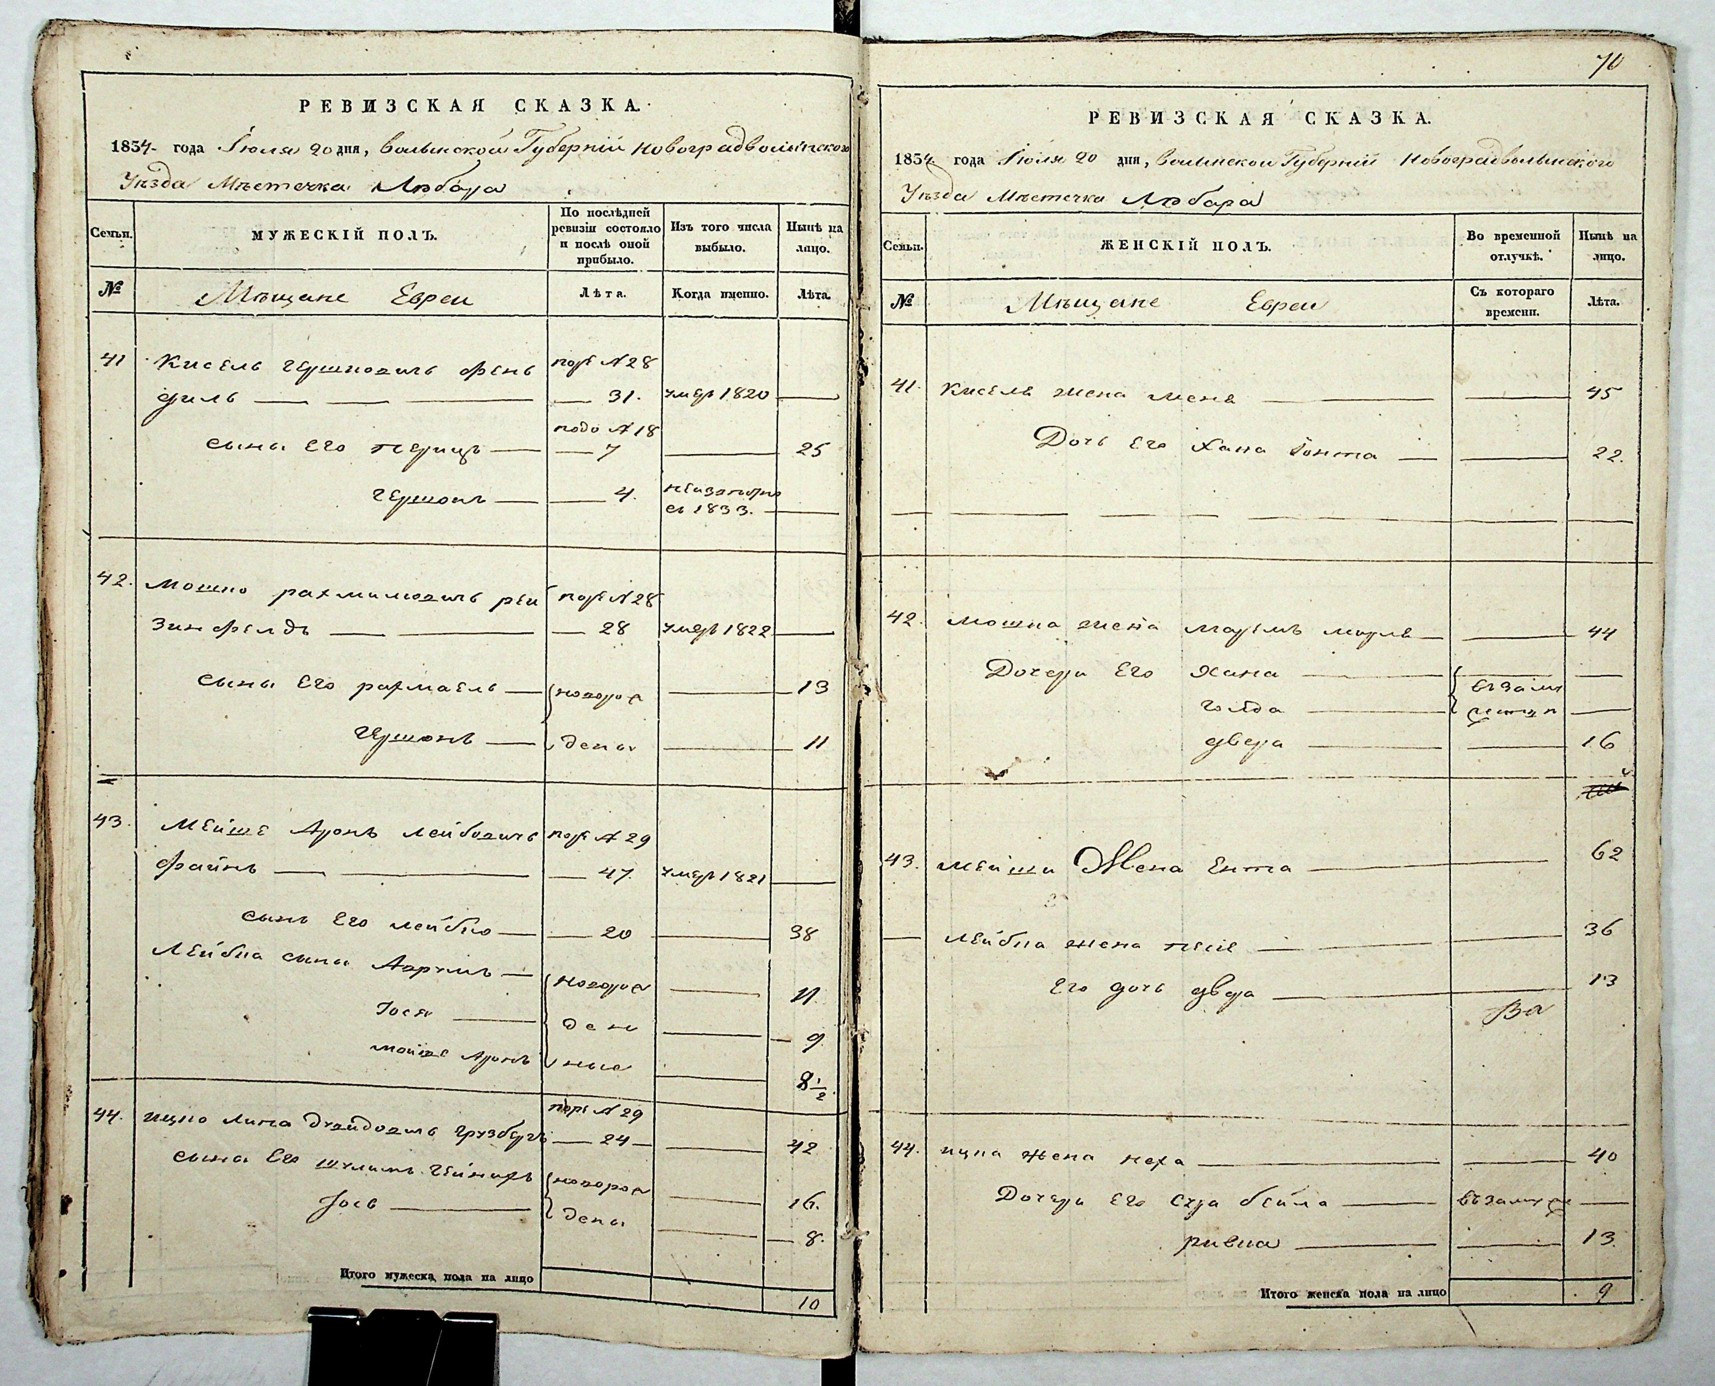 РЕВИЗСКАЯ СКАЗКА.
1834 года Іюля 20 дня, Волынской Губерніи Новоградволынского
Уѣзда Мѣстечка Любара
Семьи.
МУЖЕСКІЙ ПОЛЪ.
По послѣдней ревизіи состояло и послѣ оной прибыло.
Изъ того числа выбыло.
Нынѣ на лицо.
№
Мѣщане Евреи
Лѣта.
Когда именно.
Лѣта.
41 Кисель Гершковичъ Фень N 28
диль 31. умеръ 1820
N 18
сыны Его Перицъ 7 25
Гершонъ 4.
съ 1833.
42. Мошко Рахмиловичъ Рей N 28
зинфелдъ 28 умеръ 1822
сыны Его Рахмаель новорож 13
Гершонъ дены 11
43. Мейше Аронъ Лейбовичъ N 29
Файнъ 47. умеръ 1821
сынъ Его Лейбко 20 38
Лейбка сыны новорож 11
Іося ден 9
Мойше Аронъ ные 8 1/2
N 29
44. Ицко Липа 24 42
сына Его Шулимъ новорож 16.
Іось дены 8.
Итого мужеска пола на лицо 10
70
РЕВИЗСКАЯ СКАЗКА.
1834 года Іюля 20 дня, Волынской Губерніи Новоградволынского
Уѣзда Мѣстечка Любара
Семьи.
ЖЕНСКІЙ ПОЛЪ.
Во временной отлучкѣ.
Нынѣ на лицо.
№
Мѣщане Евреи
Съ котораго времени.
Лѣта.
41. Киселя жена 45
Дочь Его Хана 22.
42. Мошка жена 44
Дочери Его Хана
въ заму
Голда
двера 16
43. Мейши Жена Ента 62
Лейбка жена 36
Его дочь двера 13
44. Ицка жена Неха 40
Дочери Его Сура Бейла въ замуже
Ривка 13
Итого женска пола на лицо 9